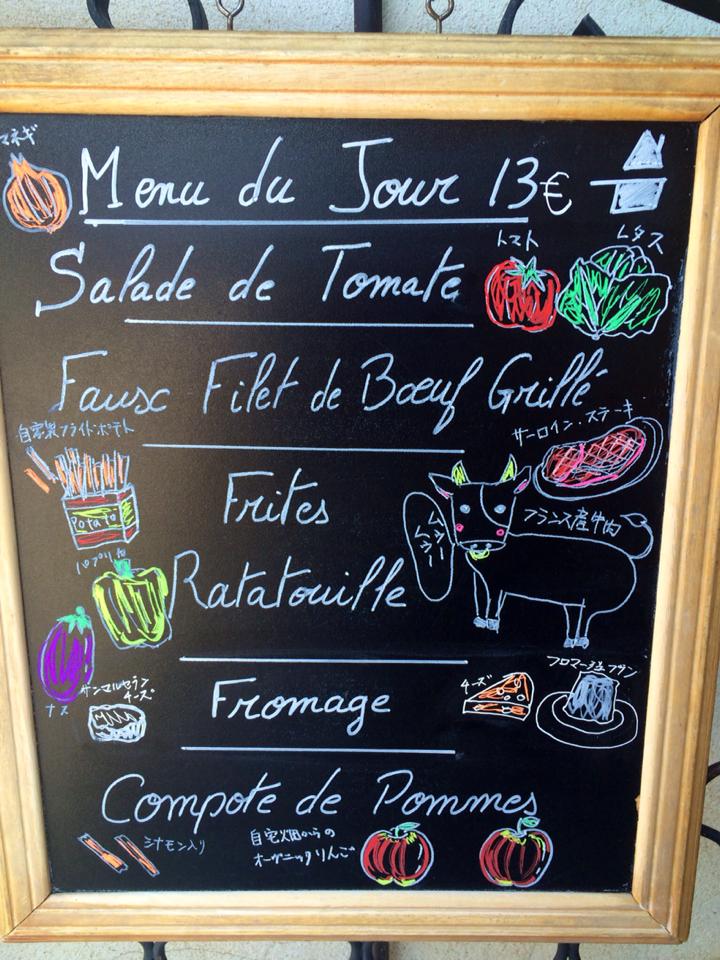 マネギ
Menu du Jour 13€
Salade de Tomate
トマト
レタス
Faux Filet de Bœuf Grillé
自家製フライド・ポテト
サーロイン・ステーキ
Potato
Frites
フランス産牛肉
パプリカ
Ratatouille
ナス
サンマルセラン
チーズ
Fromage
チーズ
フロマージュブラン
Compote de Pommes
シナモン入り
自宅畑からの
オーガニックりんご